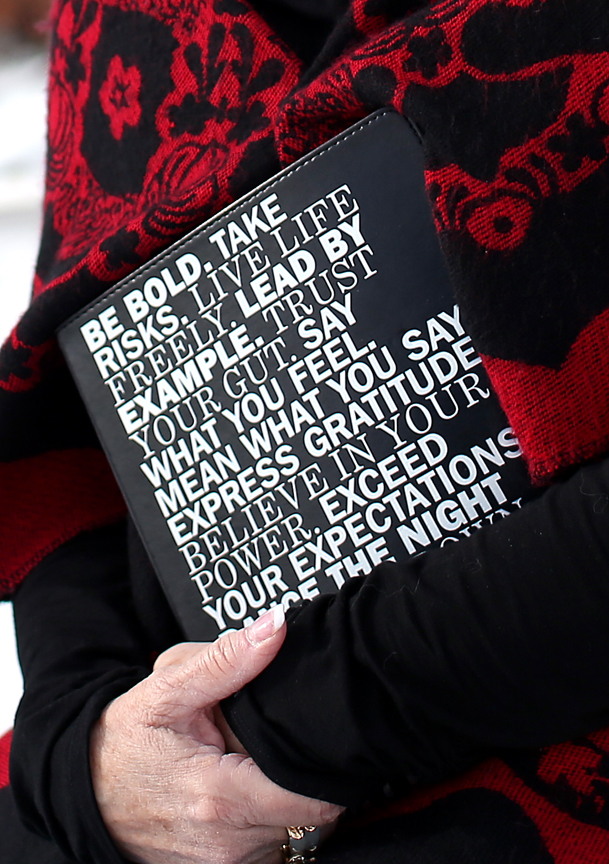 BE BOLD. TAKE
RISKS. LIVE LIFE
FREELY. LEAD BY
EXAMPLE. TRUST
YOUR GUT. SAY
WHAT YOU FEEL.
MEAN WHAT YOU SAY
EXPRESS GRATITUDE
BELIEVE IN YOUR
POWER. EXCEED
YOUR EXPECTATIONS
DANCE THE NIGHT
OWN